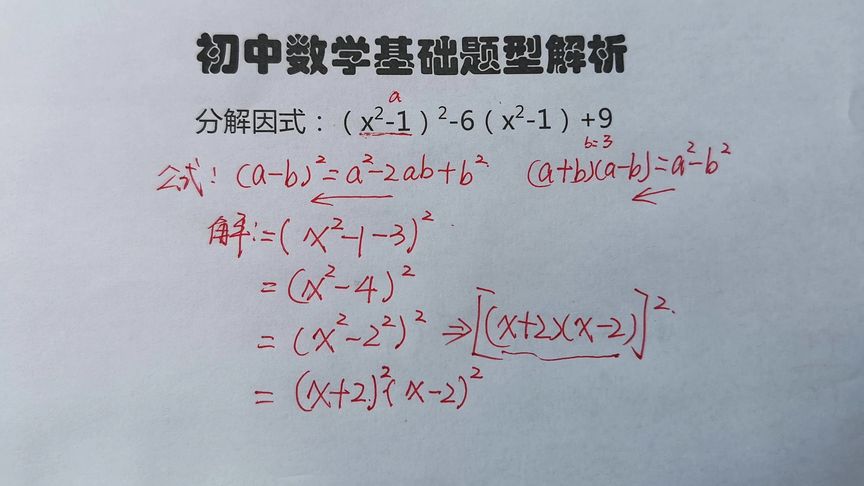 初中数学基础题型解析
a
分解因式：（x²-1）²-6（x²-1）+9
b=3
公式：(a-b)²=a²-2ab+b² (a+b)(a-b)=a²-b²
解：=(x²-1-3)²
=(x²-4)²
=(x²-2²)² ⇒[(x+2)(x-2)]²
=(x+2)²(x-2)²